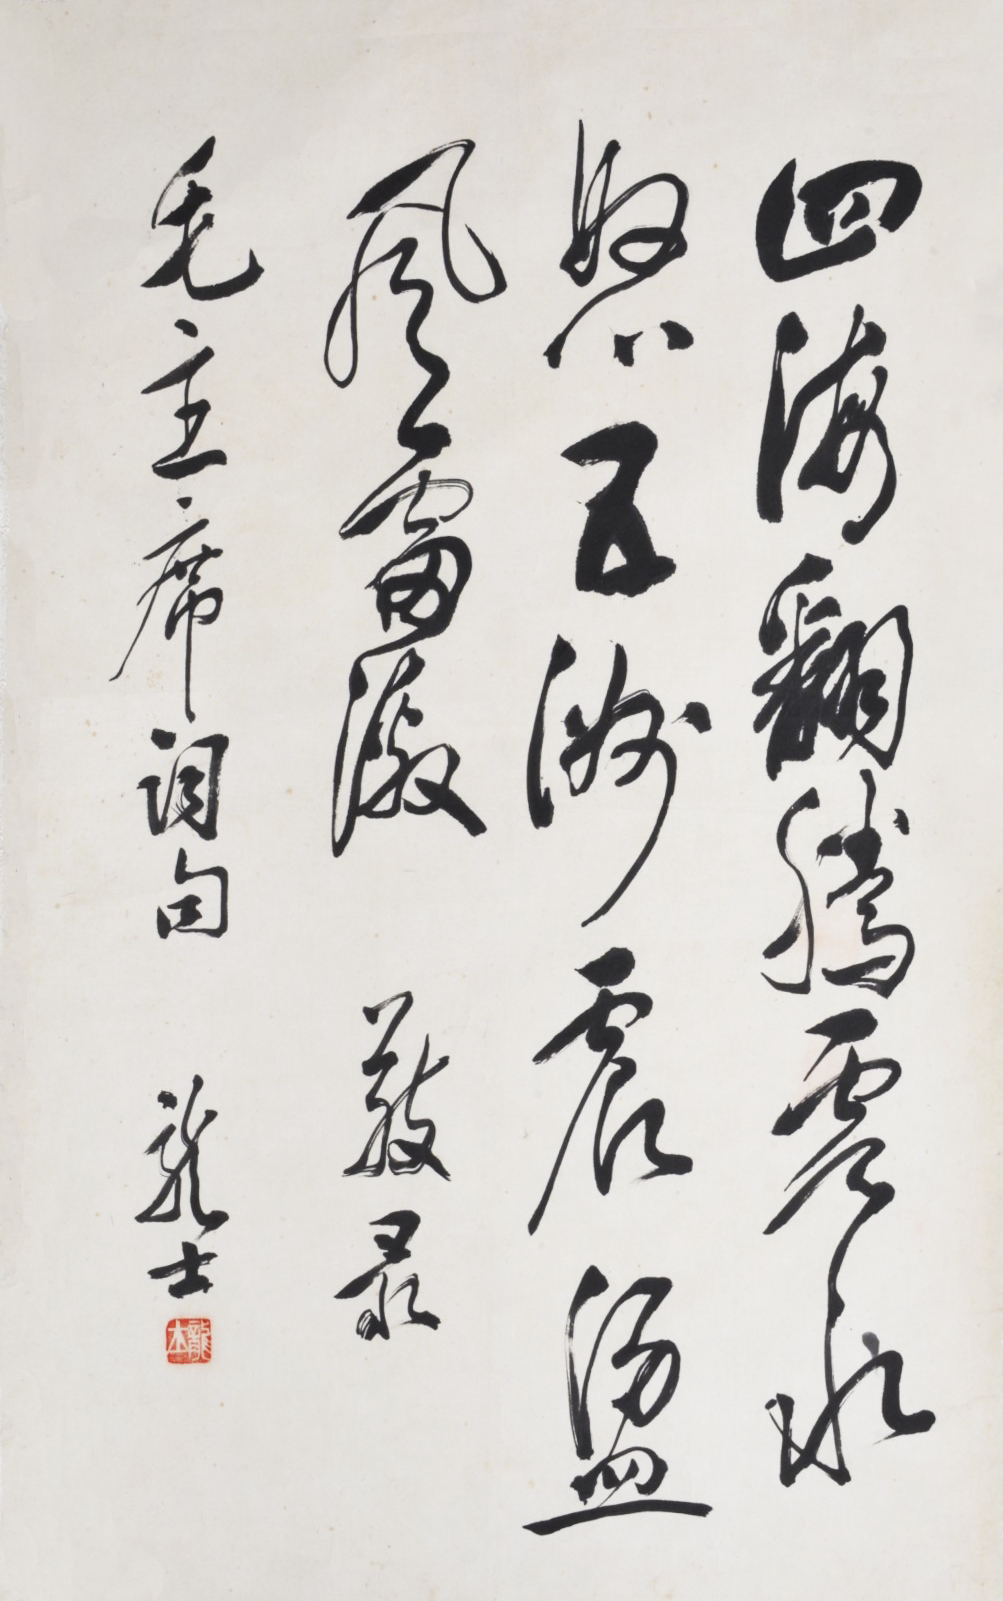 四海翻腾云水
怒五洲震盪
风雷激 敬录
毛主席词句 龙士